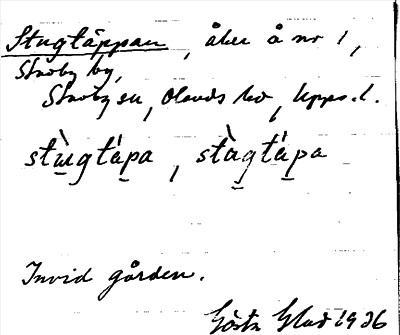 Stugtäppan, åker å nr 1,
Skuttby by,
Skuttby sn, Olands hd, Upps. l.
stù̱gtáp̱a, stà̱gtáp̱a
Invid gården.
Gösta Glad 1936